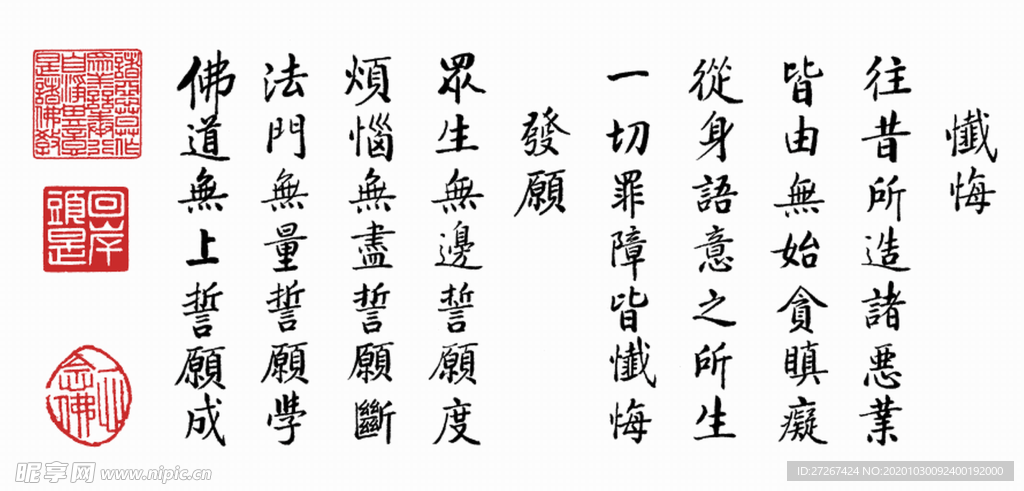 懺悔
往昔所造諸惡業
皆由無始貪瞋癡
從身語意之所生
一切罪障皆懺悔
發願
眾生無邊誓願度
煩惱無盡誓願斷
法門無量誓願學
佛道無上誓願成
諸惡莫作
眾善奉行
自淨其意
是諸佛教
回岸
頭是
一心
念佛
昵享网 www.nipic.cn
ID:27267424 NO:20201030092400192000